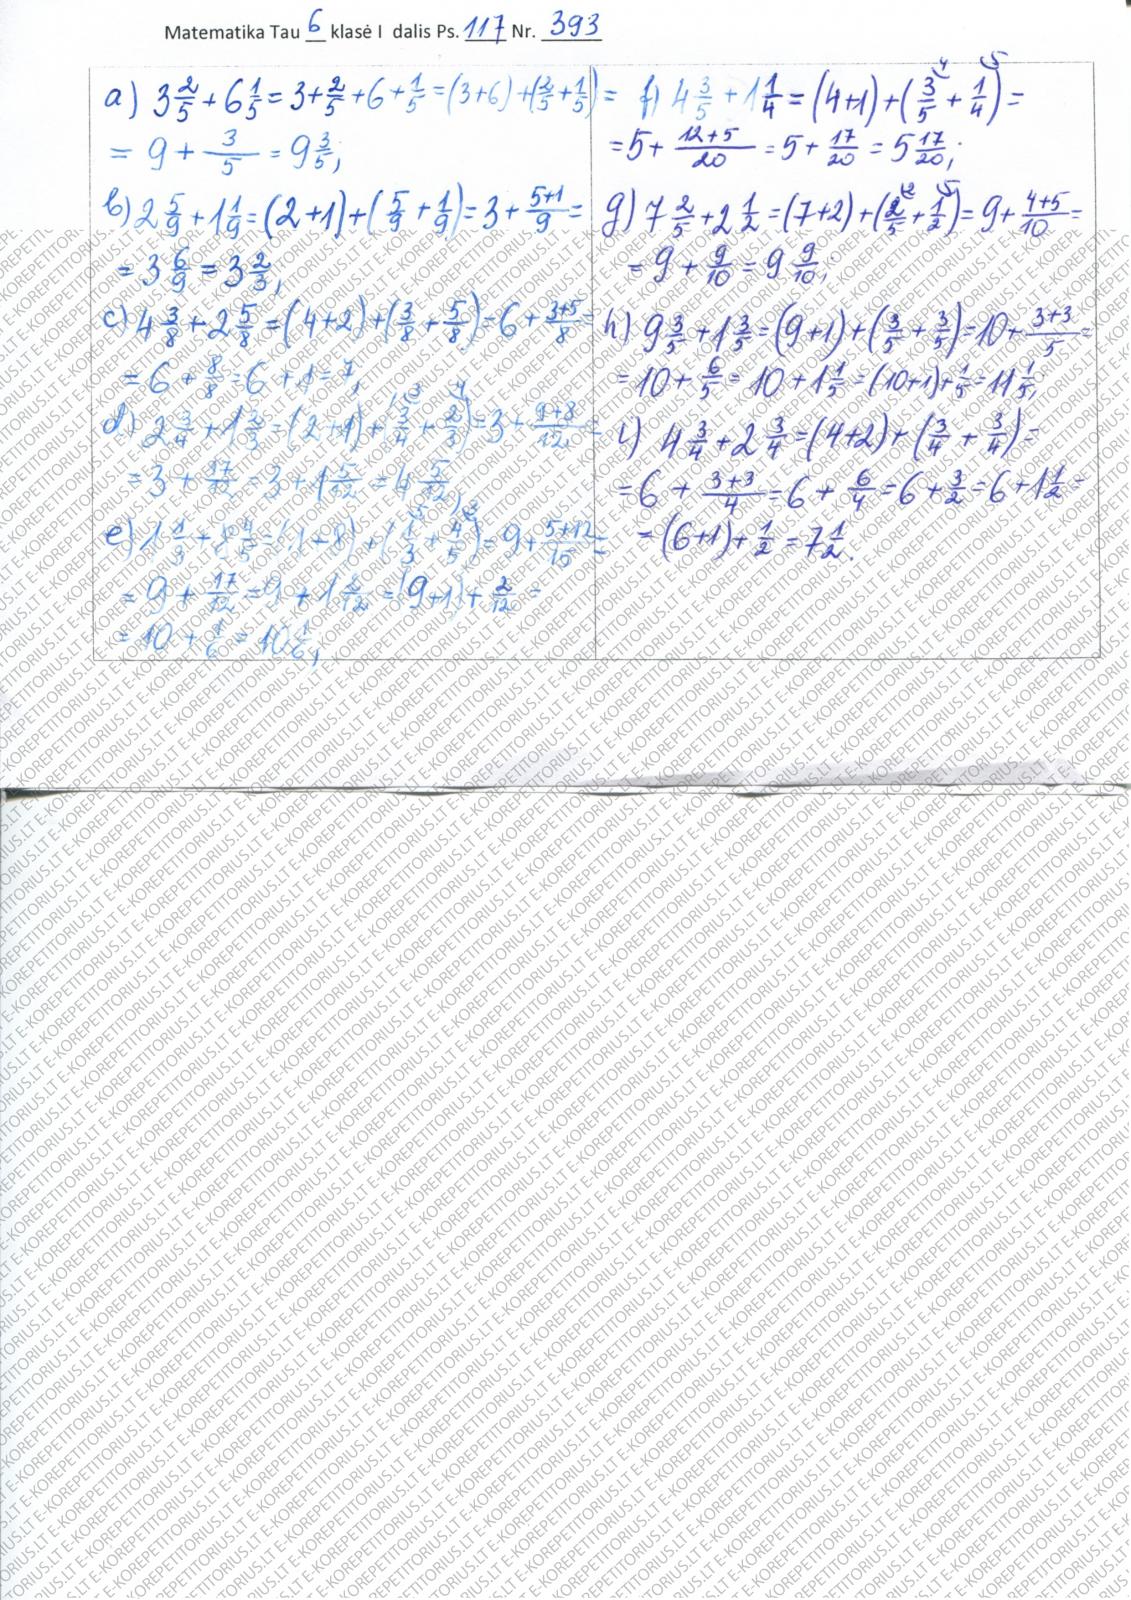 Matematika Tau 6 klasė I dalis Ps. 117 Nr. 393
a) 3 2/5 + 6 1/5 = 3 + 2/5 + 6 + 1/5 = (3+6) + (2/5 + 1/5) =
= 9 + 3/5 = 9 3/5;
b) 2 5/9 + 1 1/9 = (2+1) + (5/9 + 1/9) = 3 + 5+1/9 =
= 3 6/9 = 3 2/3;
c) 4 3/8 + 2 5/8 = (4+2) + (3/8 + 5/8) = 6 + 3+5/8 =
= 6 + 8/8 = 6 + 1 = 7;
d) 2 3/4 + 1 2/3 = (2+1) + (3/4 3 + 2/3 4) = 3 + 9+8/12 =
= 3 + 17/12 = 3 + 1 5/12 = 4 5/12;
e) 1 1/3 + 8 4/5 = (1+8) + (1/3 5 + 4/5 3) = 9 + 5+12/15 =
= 9 + 17/12 = 9 + 1 2/12 = (9+1) + 2/12 =
= 10 + 1/6 = 10 1/6;
f) 4 3/5 + 1 1/4 = (4+1) + (3/5 4 + 1/4 5) =
= 5 + 12+5/20 = 5 + 17/20 = 5 17/20;
g) 7 2/5 + 2 1/2 = (7+2) + (2/5 2 + 1/2 5) = 9 + 4+5/10 =
= 9 + 9/10 = 9 9/10;
h) 9 3/5 + 1 3/5 = (9+1) + (3/5 + 3/5) = 10 + 3+3/5 =
= 10 + 6/5 = 10 + 1 1/5 = (10+1) + 1/5 = 11 1/5;
i) 4 3/4 + 2 3/4 = (4+2) + (3/4 + 3/4) =
= 6 + 3+3/4 = 6 + 6/4 = 6 + 3/2 = 6 + 1 1/2 =
= (6+1) + 1/2 = 7 1/2.
E-KOREPETITORIUS.LT